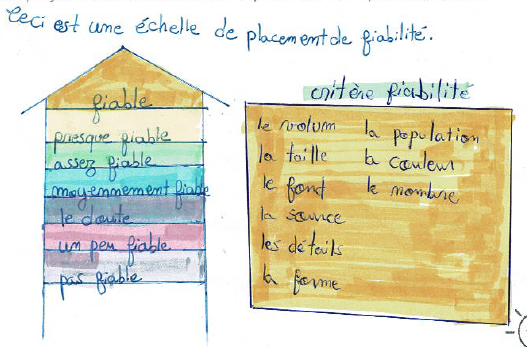 Ceci est une échelle de placement de fiabilité.
fiable
presque fiable
assez fiable
moyennement fiable
le doute
un peu fiable
pas fiable
critère fiabilité
le volum
la taille
le fond
la source
les détails
la forme
la population
la couleur
le nombre